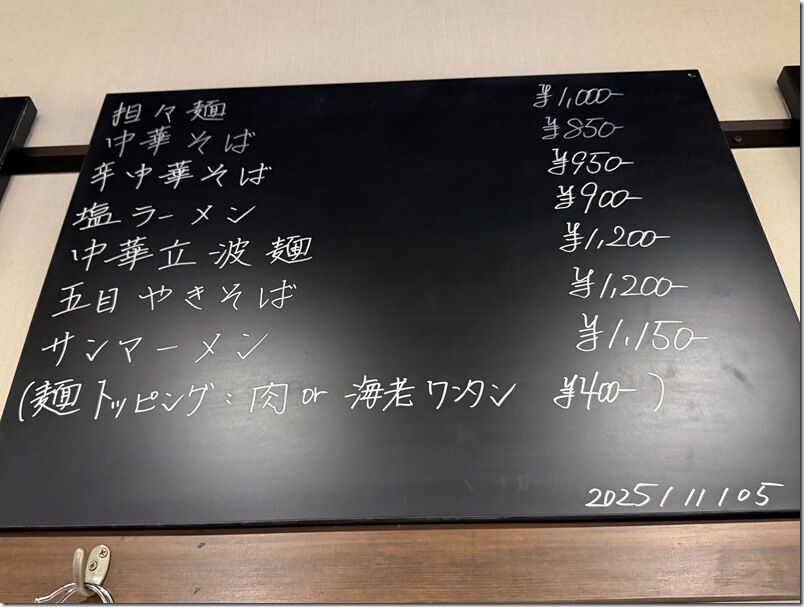 担々麺 ¥1,000-
中華そば ¥850-
辛中華そば ¥950-
塩ラーメン ¥900-
中華立波麺 ¥1,200-
五目やきそば ¥1,200-
サンマーメン ¥1,150-
(麺トッピング:肉or海老ワンタン ¥400-)
2025/11/05